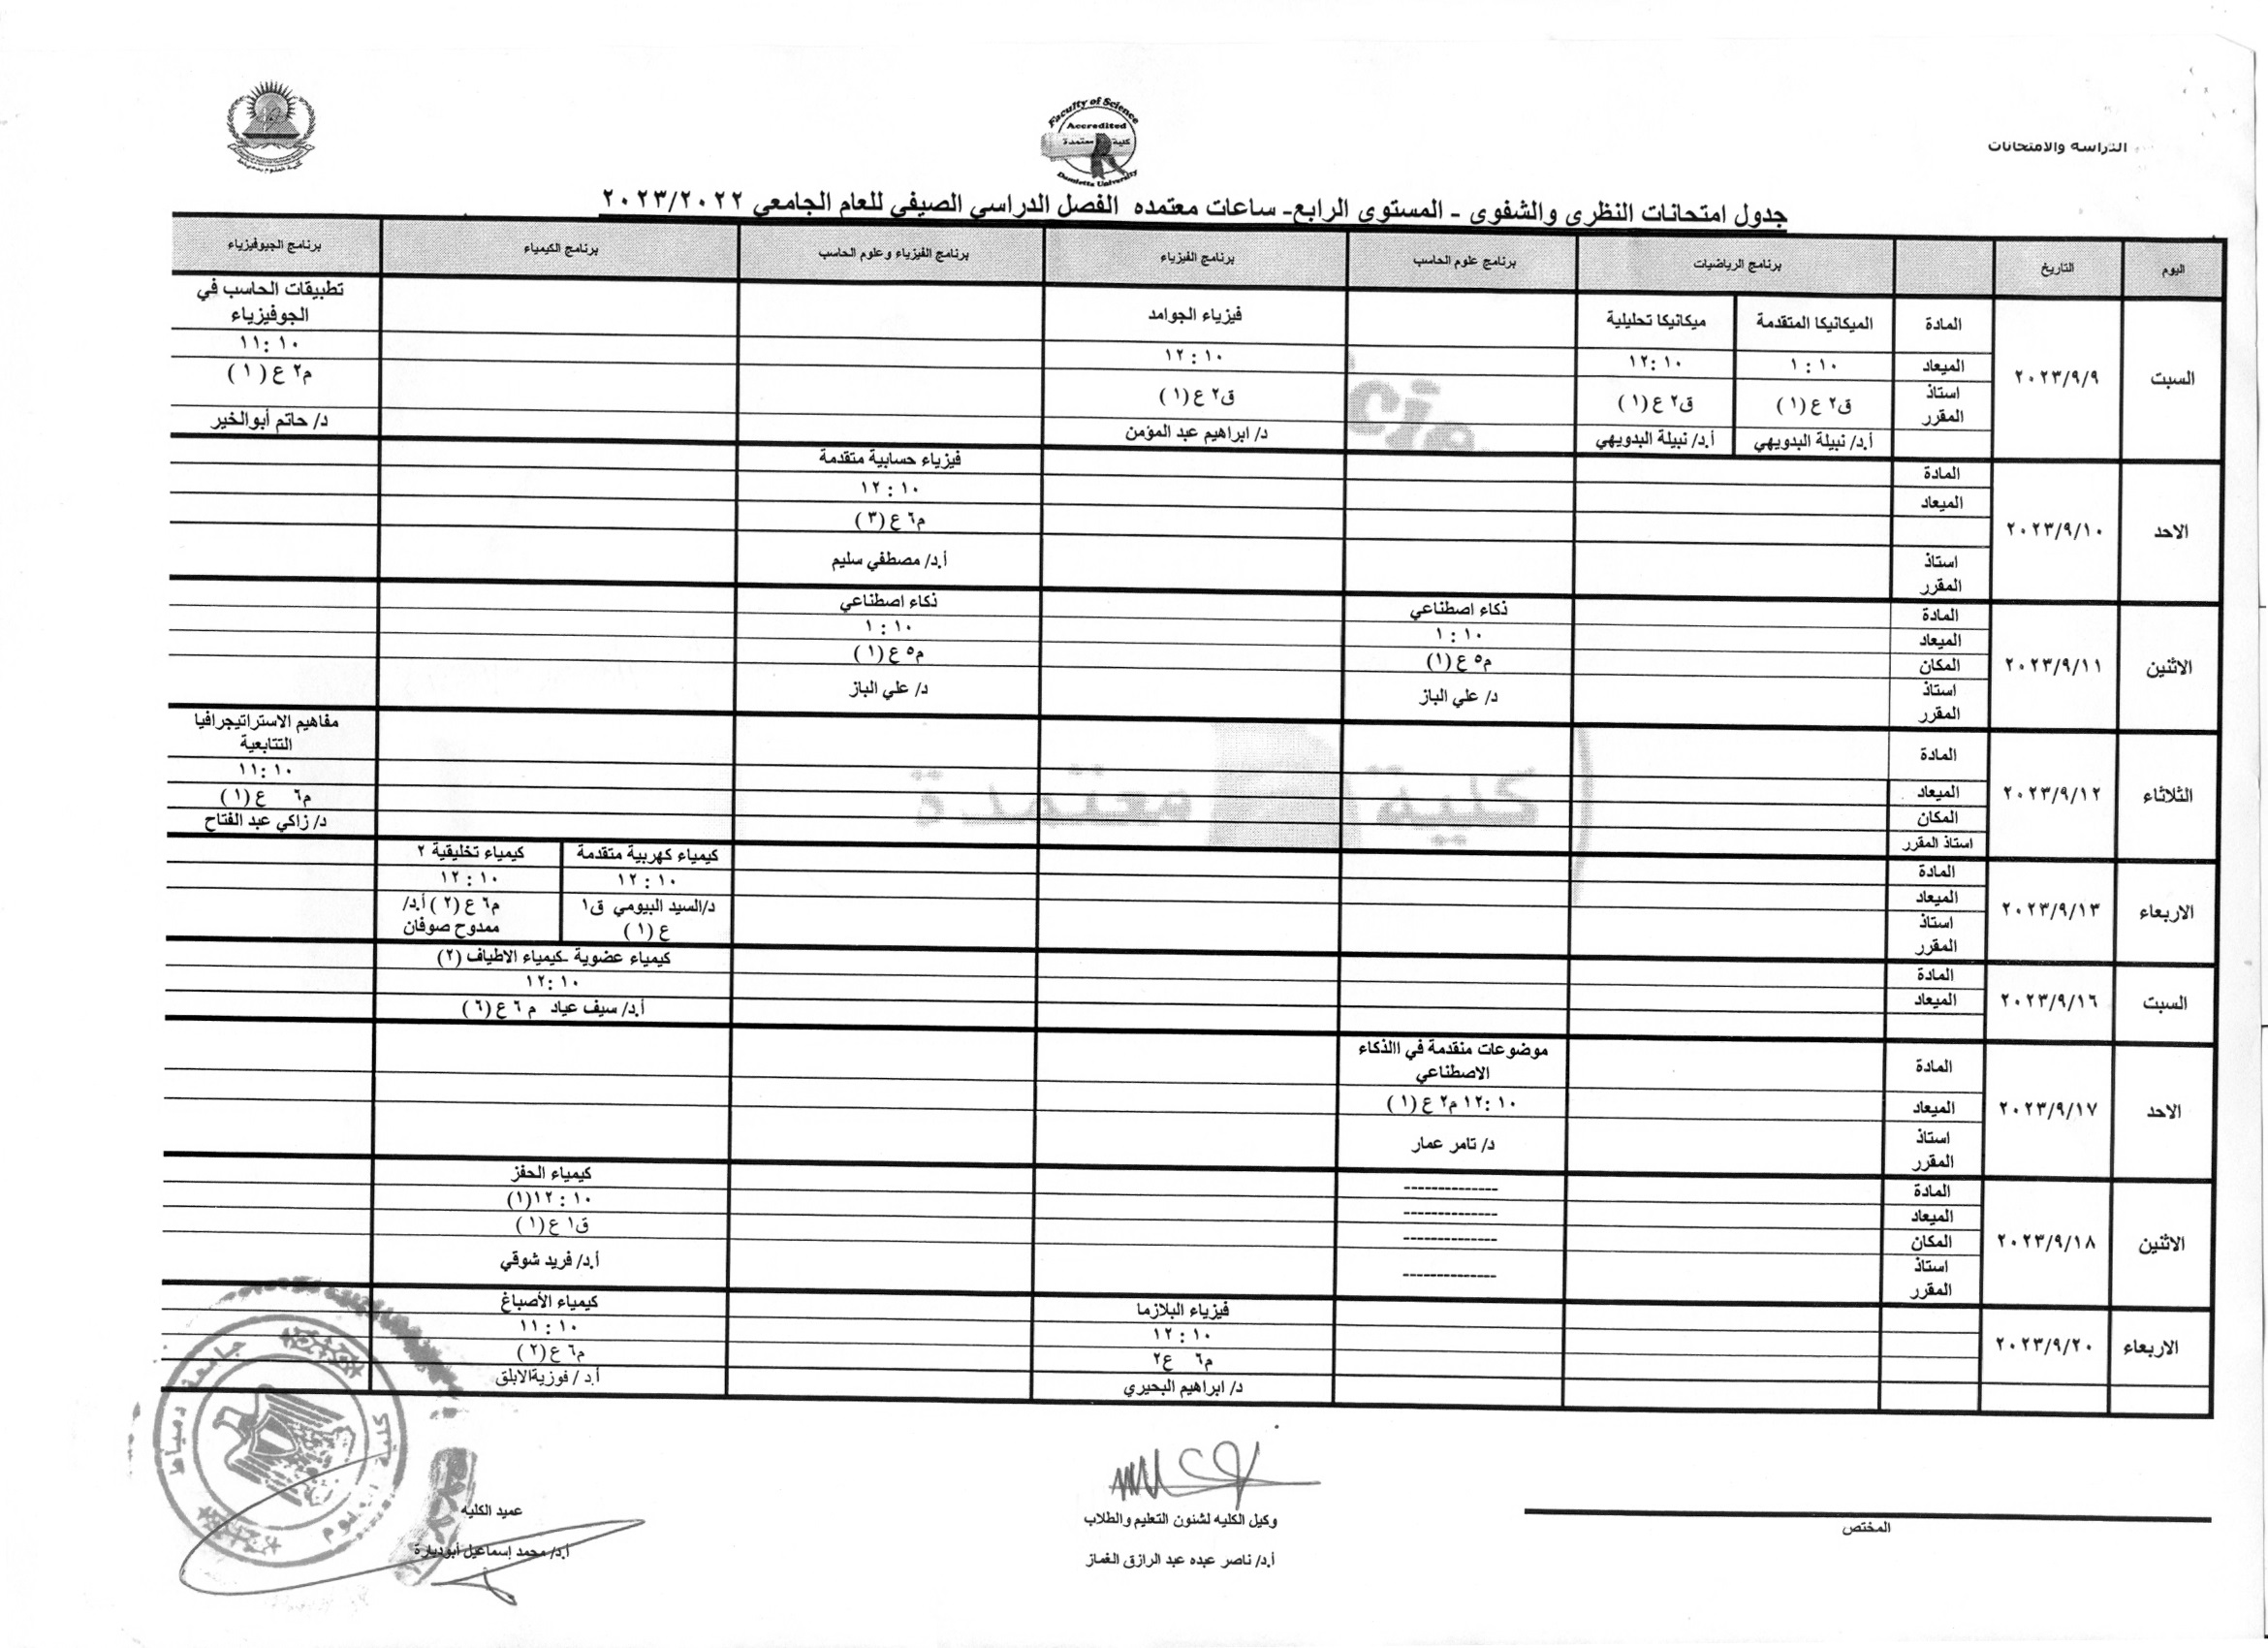 الدراسه والامتحانات
Faculty of Science
Accredited
كلية معتمدة
Damietta University
جدول امتحانات النظرى والشفوى - المستوى الرابع- ساعات معتمده الفصل الدراسي الصيفي للعام الجامعي ٢٠٢٣/٢٠٢٢
اليوم التاريخ برنامج الرياضيات برنامج علوم الحاسب برنامج الفيزياء برنامج الفيزياء وعلوم الحاسب برنامج الكيمياء برنامج الجيوفيزياء
السبت ٢٠٢٣/٩/٩
المادة الميكانيكا المتقدمة ميكانيكا تحليلية فيزياء الجوامد تطبيقات الحاسب في الجوفيزياء
الميعاد ١٠ : ١ ١٠ :١٢ ١٠ : ١٢ ١٠ :١١
استاذ المقرر ق٢ ع (١) ق٢ ع (١) ق٢ ع (١) م٢ ع (١)
أ.د/ نبيلة البدويهي أ.د/ نبيلة البدويهي د/ ابراهيم عبد المؤمن د/ حاتم أبوالخير
الاحد ٢٠٢٣/٩/١٠
المادة فيزياء حسابية متقدمة
الميعاد ١٠ : ١٢
م٦ ع (٣)
استاذ المقرر أ.د/ مصطفي سليم
الاثنين ٢٠٢٣/٩/١١
المادة ذكاء اصطناعي ذكاء اصطناعي
الميعاد ١٠ : ١ ١٠ : ١
المكان م٥ ع (١) م٥ ع (١)
استاذ المقرر د/ علي الباز د/ علي الباز
الثلاثاء ٢٠٢٣/٩/١٢
المادة مفاهيم الاستراتيجرافيا التتابعية
الميعاد ١٠ :١١
المكان م٦ ع (١)
استاذ المقرر د/ زاكي عبد الفتاح
كلية معتمدة
الاربعاء ٢٠٢٣/٩/١٣
المادة كيمياء كهربية متقدمة كيمياء تخليقية ٢
الميعاد ١٠ : ١٢ ١٠ : ١٢
استاذ المقرر د/السيد البيومي ق١ ع (١) م٦ ع (٢) أ.د/ ممدوح صوفان
السبت ٢٠٢٣/٩/١٦
المادة كيمياء عضوية -كيمياء الاطياف (٢)
الميعاد ١٠ :١٢
أ.د/ سيف عياد م ٦ ع (٦)
الاحد ٢٠٢٣/٩/١٧
المادة موضوعات متقدمة في االذكاء الاصطناعي
الميعاد ١٠ :١٢ م٢ ع (١)
استاذ المقرر د/ تامر عمار
الاثنين ٢٠٢٣/٩/١٨
المادة -------------- كيمياء الحفز
الميعاد -------------- ١٠ : ١٢(١)
المكان -------------- ق١ ع (١)
استاذ المقرر -------------- أ.د/ فريد شوقي
الاربعاء ٢٠٢٣/٩/٢٠
فيزياء البلازما كيمياء الأصباغ
١٠ : ١٢ ١٠ : ١١
م٦ ع٢ م٦ ع (٢)
د/ ابراهيم البحيري أ.د / فوزيةالابلق
المختص
وكيل الكليه لشئون التعليم والطلاب
أ.د/ ناصر عبده عبد الرازق الغماز
عميد الكليه
أ.د/ محمد إسماعيل أبوديارة
جامعة دمياط